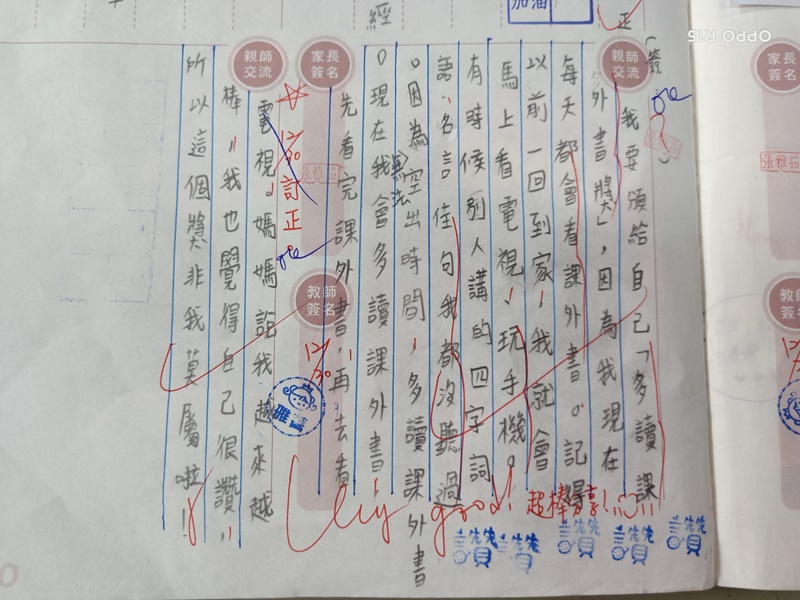 我要頒給自己「多讀課
外書獎」,因為我現在
每天都會看課外書。記得
以前一回到家,我就會
馬上看電視、玩手機。
有時候別人講的四字詞
語、名言佳句我都沒聽過
。因為空出時間,多讀課外書
。現在我會多讀課外書
先看完課外書,再去看
電視。媽媽說我越來越
棒,我也覺得自己很讚,
所以這個獎非我莫屬啦!
親師交流
家長簽名
親師交流
教師簽名
家長簽名
張雅茹
12/30 訂正。
12/30
Very good!
超棒分享!
讚讚
讚
讚
讚
讚
加油
經
正
(簽
OPPO R15